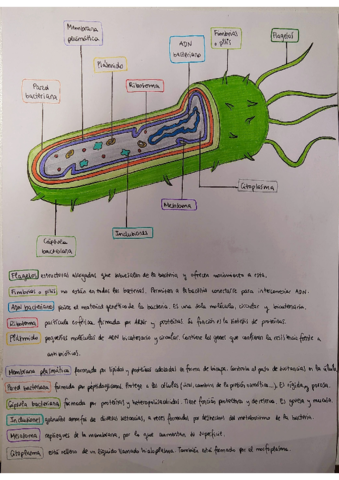 Membrana
plasmática
Plásmido
Ribosoma
ADN
bacteriano
Fimbrias
o pilis
Flagelos
Pared
bacteriana
Citoplasma
Mesosoma
Inclusiones
Cápsula
bacteriana
Flagelos estructuras alargadas que salen de la bacteria y ofrece movimiento a esta.
Fimbrias o pilis no están en todas las bacterias. Permiten a la bacteria conectarse para intercambiar ADN.
ADN bacteriano posee el material genético de la bacteria. Es una sola molécula, circular y bicatenaria.
Ribosoma partícula esférica formada por ARNr y proteínas. Su función es la síntesis de proteínas.
Plásmido pequeñas moléculas de ADN bicatenario y circular. Contiene los genes que confieren la resistencia frente a
antibióticos.
Membrana plasmática formada por lípidos y proteínas adoptando la forma de bicapa. Controla el paso de sustancias en la célula.
Pared bacteriana formada por peptidoglicano. Protege a las células de cambios de la presión osmótica. Es rígida y porosa.
Cápsula bacteriana formada por proteínas y heteropolisacáridos. Tiene función protectora y de reserva. Es gruesa y mucosa.
Inclusiones gránulos de diversas sustancias, a veces formadas por desechos del metabolismo de la bacteria.
Mesosoma repliegues de la membrana, por lo que aumentan su superficie.
Citoplasma está relleno de un líquido llamado hialoplasma. También está formado por el morfoplasma.